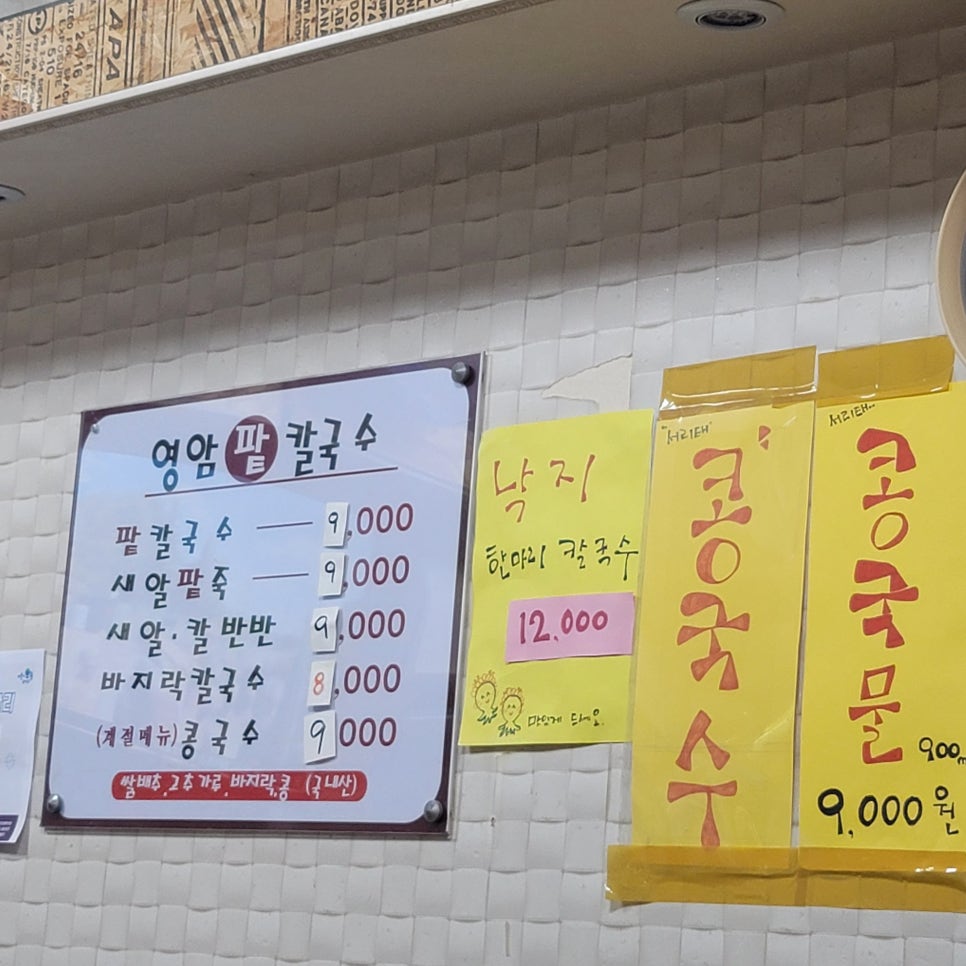 APA
영암 팥 칼국수
팥칼국수 9,000
새알팥죽 9,000
새알.칼반반 9,000
바지락칼국수 8,000
(계절메뉴)콩국수 9,000
쌀,배추,고추가루,바지락,콩 (국내산)
낙지
한마리 칼국수
12,000
맛있게 드세요.
"서리태"
콩국수
"서리태"
콩국물
900m
9,000원